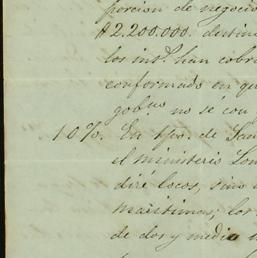 porcion de negocio
$2.200.000. destin
los inst.s han cobr
conformado en qu
gob.no no sé con
10%. En tpo. de
el ministerio
diré locos, sino
maritimas; lor
de dos y media